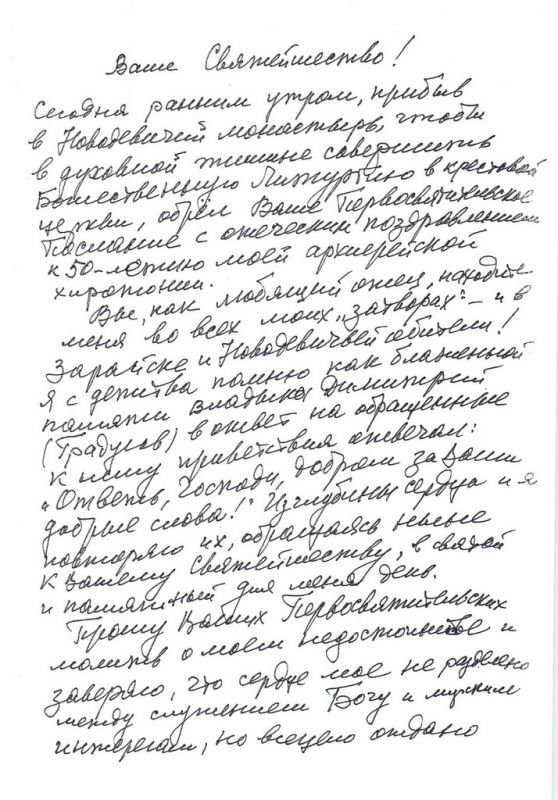 Ваше Святейшество!
Сегодня ранним утром, прибыв
в Новодевичий монастырь, чтобы
в духовной тишине совершить
Божественную Литургию в крестовой
церкви, обрел Ваше Первосвятительское
Послание с отеческим поздравлением
к 50-летию моей архиерейской
хиротонии.
Вы, как любящий отец, находите
меня во всех моих „затворах“ – и в
Зарайске и Новодевичьей обители!
Я с детства помню как блаженной
памяти Владыка Димитрий
(Градусов) в ответ на обращенные
к нему приветствия отвечал:
„Ответь, Господи, добром за Ваши
добрые слова!“ Из глубины сердца и я
повторяю их, обращаясь ныне
к Вашему Святейшеству, в святой
и памятный для меня день.
Прошу Ваших Первосвятительских
молитв о моем недостоинстве и
заверяю, что сердце мое не разделено
между служением Богу и мирским
интересам, но всецело отдано